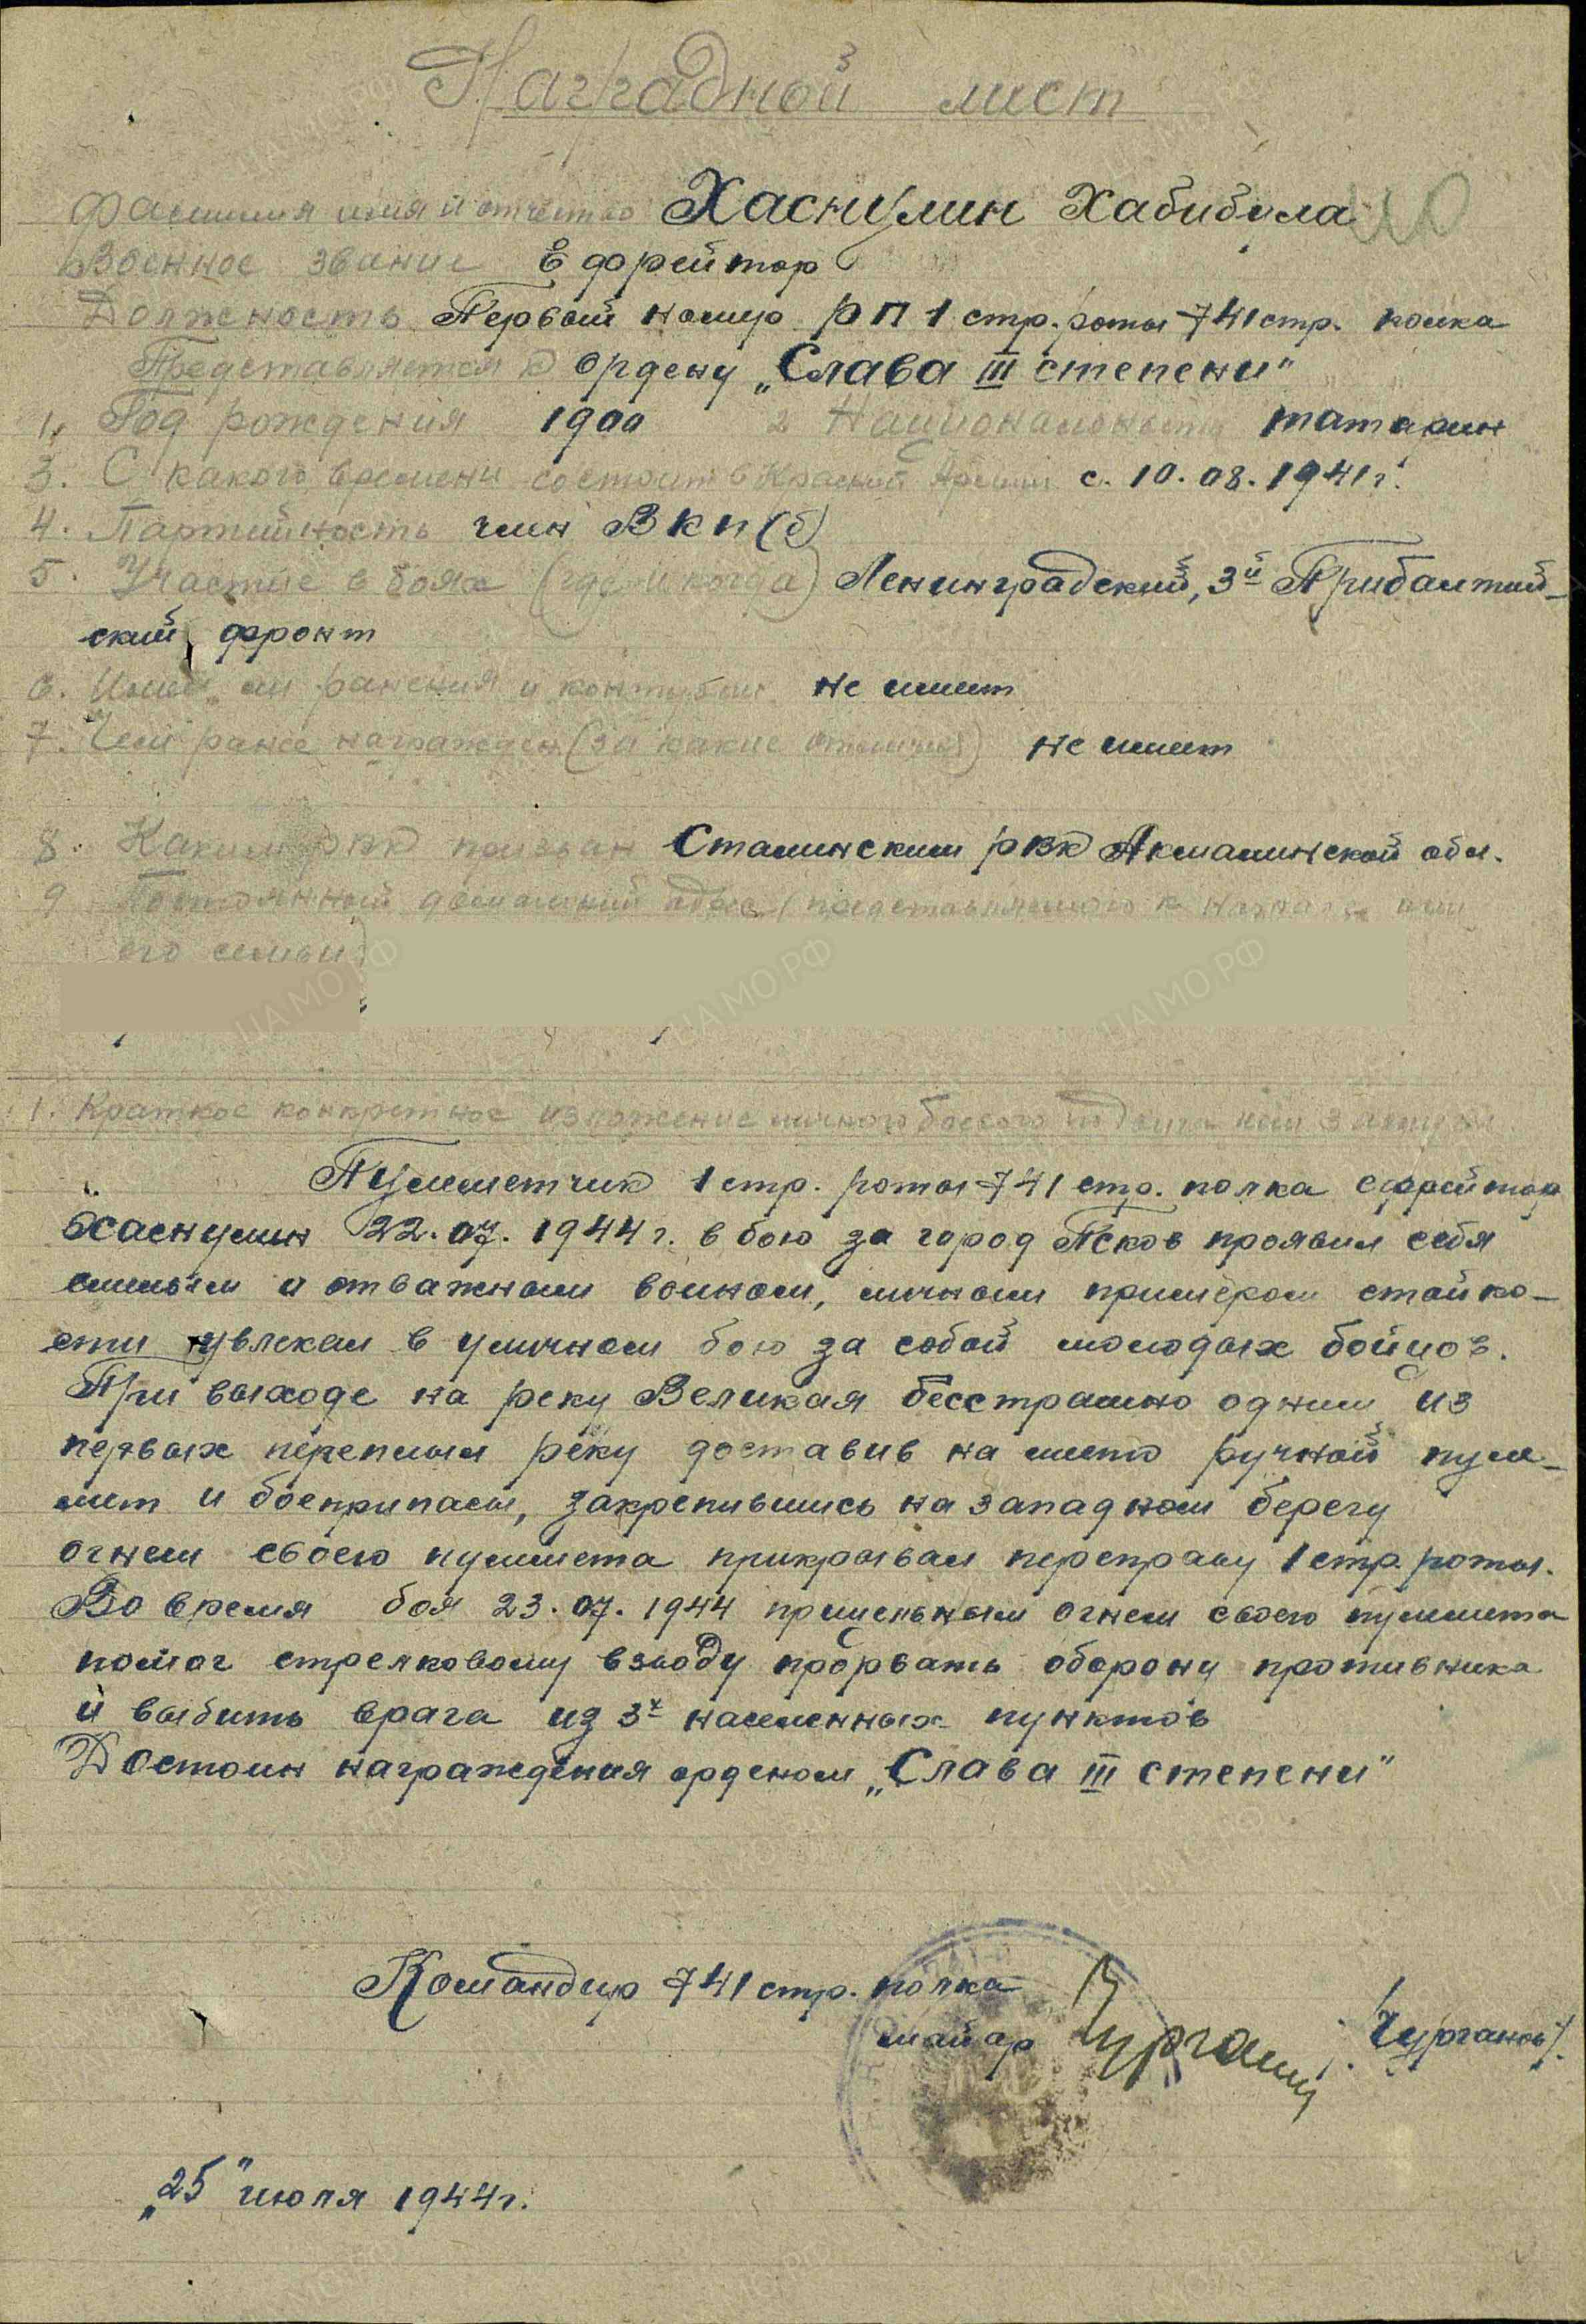 Наградной лист
Фамилия имя и отчество Хаснулин Хабибула
Военное звание Ефрейтор
Должность Первый номер РП 1 стр. роты 741 стр. полка
Представляется к Ордену „Слава III степени"
1. Год рождения 1900 2 Национальность татарин
3. С какого времени состоит в Красной Армии с 10.08.1941 г.
4. Партийность член ВКП(б)
5. Участие в боях (где и когда) Ленинградский, 3й Прибалтий-
ский фронт
6. Имеет ли ранения и контузии не имеет
7. Чем ранее награжден (за какие отличия) не имеет
8. Каким РВК призван Сталинским РВК Акмалинской обл.
9 Постоянный домашний адрес (представляемого к наград. или
его семьи)
1. Краткое конкретное изложение личного боевого подвига или заслуги
Пулеметчик 1 стр. роты 741 стр. полка ефрейтор
Хаснулин 22.07.1944 г. в бою за город Псков проявил себя
смелым и отважным воином, личным примером стойко-
сти увлекал в уличном бою за собой молодых бойцов.
При выходе на реку Великая бесстрашно одним из
первых переплыл реку доставив на место ручной пуле-
мет и боеприпасы, закрепившись на западном берегу
огнем своего пулемета прикрывал переправу 1 стр. роты.
Во время боя 23.07.1944 прицельным огнем своего пулемета
помог стрелковому взводу прорвать оборону противника
и выбить врага из 3х населенных пунктов
Достоин награждения орденом „Слава III степени"
Командир 741 стр. полка
майор /Чурганов/.
„25" июля 1944 г.
ЦАМО РФ ЦАМО РФ ЦАМО РФ